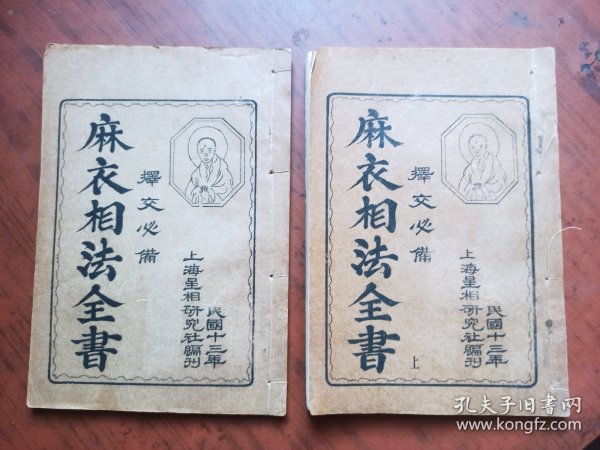 麻衣相法全書
擇交必備
上海星相研究社編刊
民國十三年
麻衣相法全書
上
擇交必備
上海星相研究社編刊
民國十三年
孔夫子旧书网
www.kongfz.com